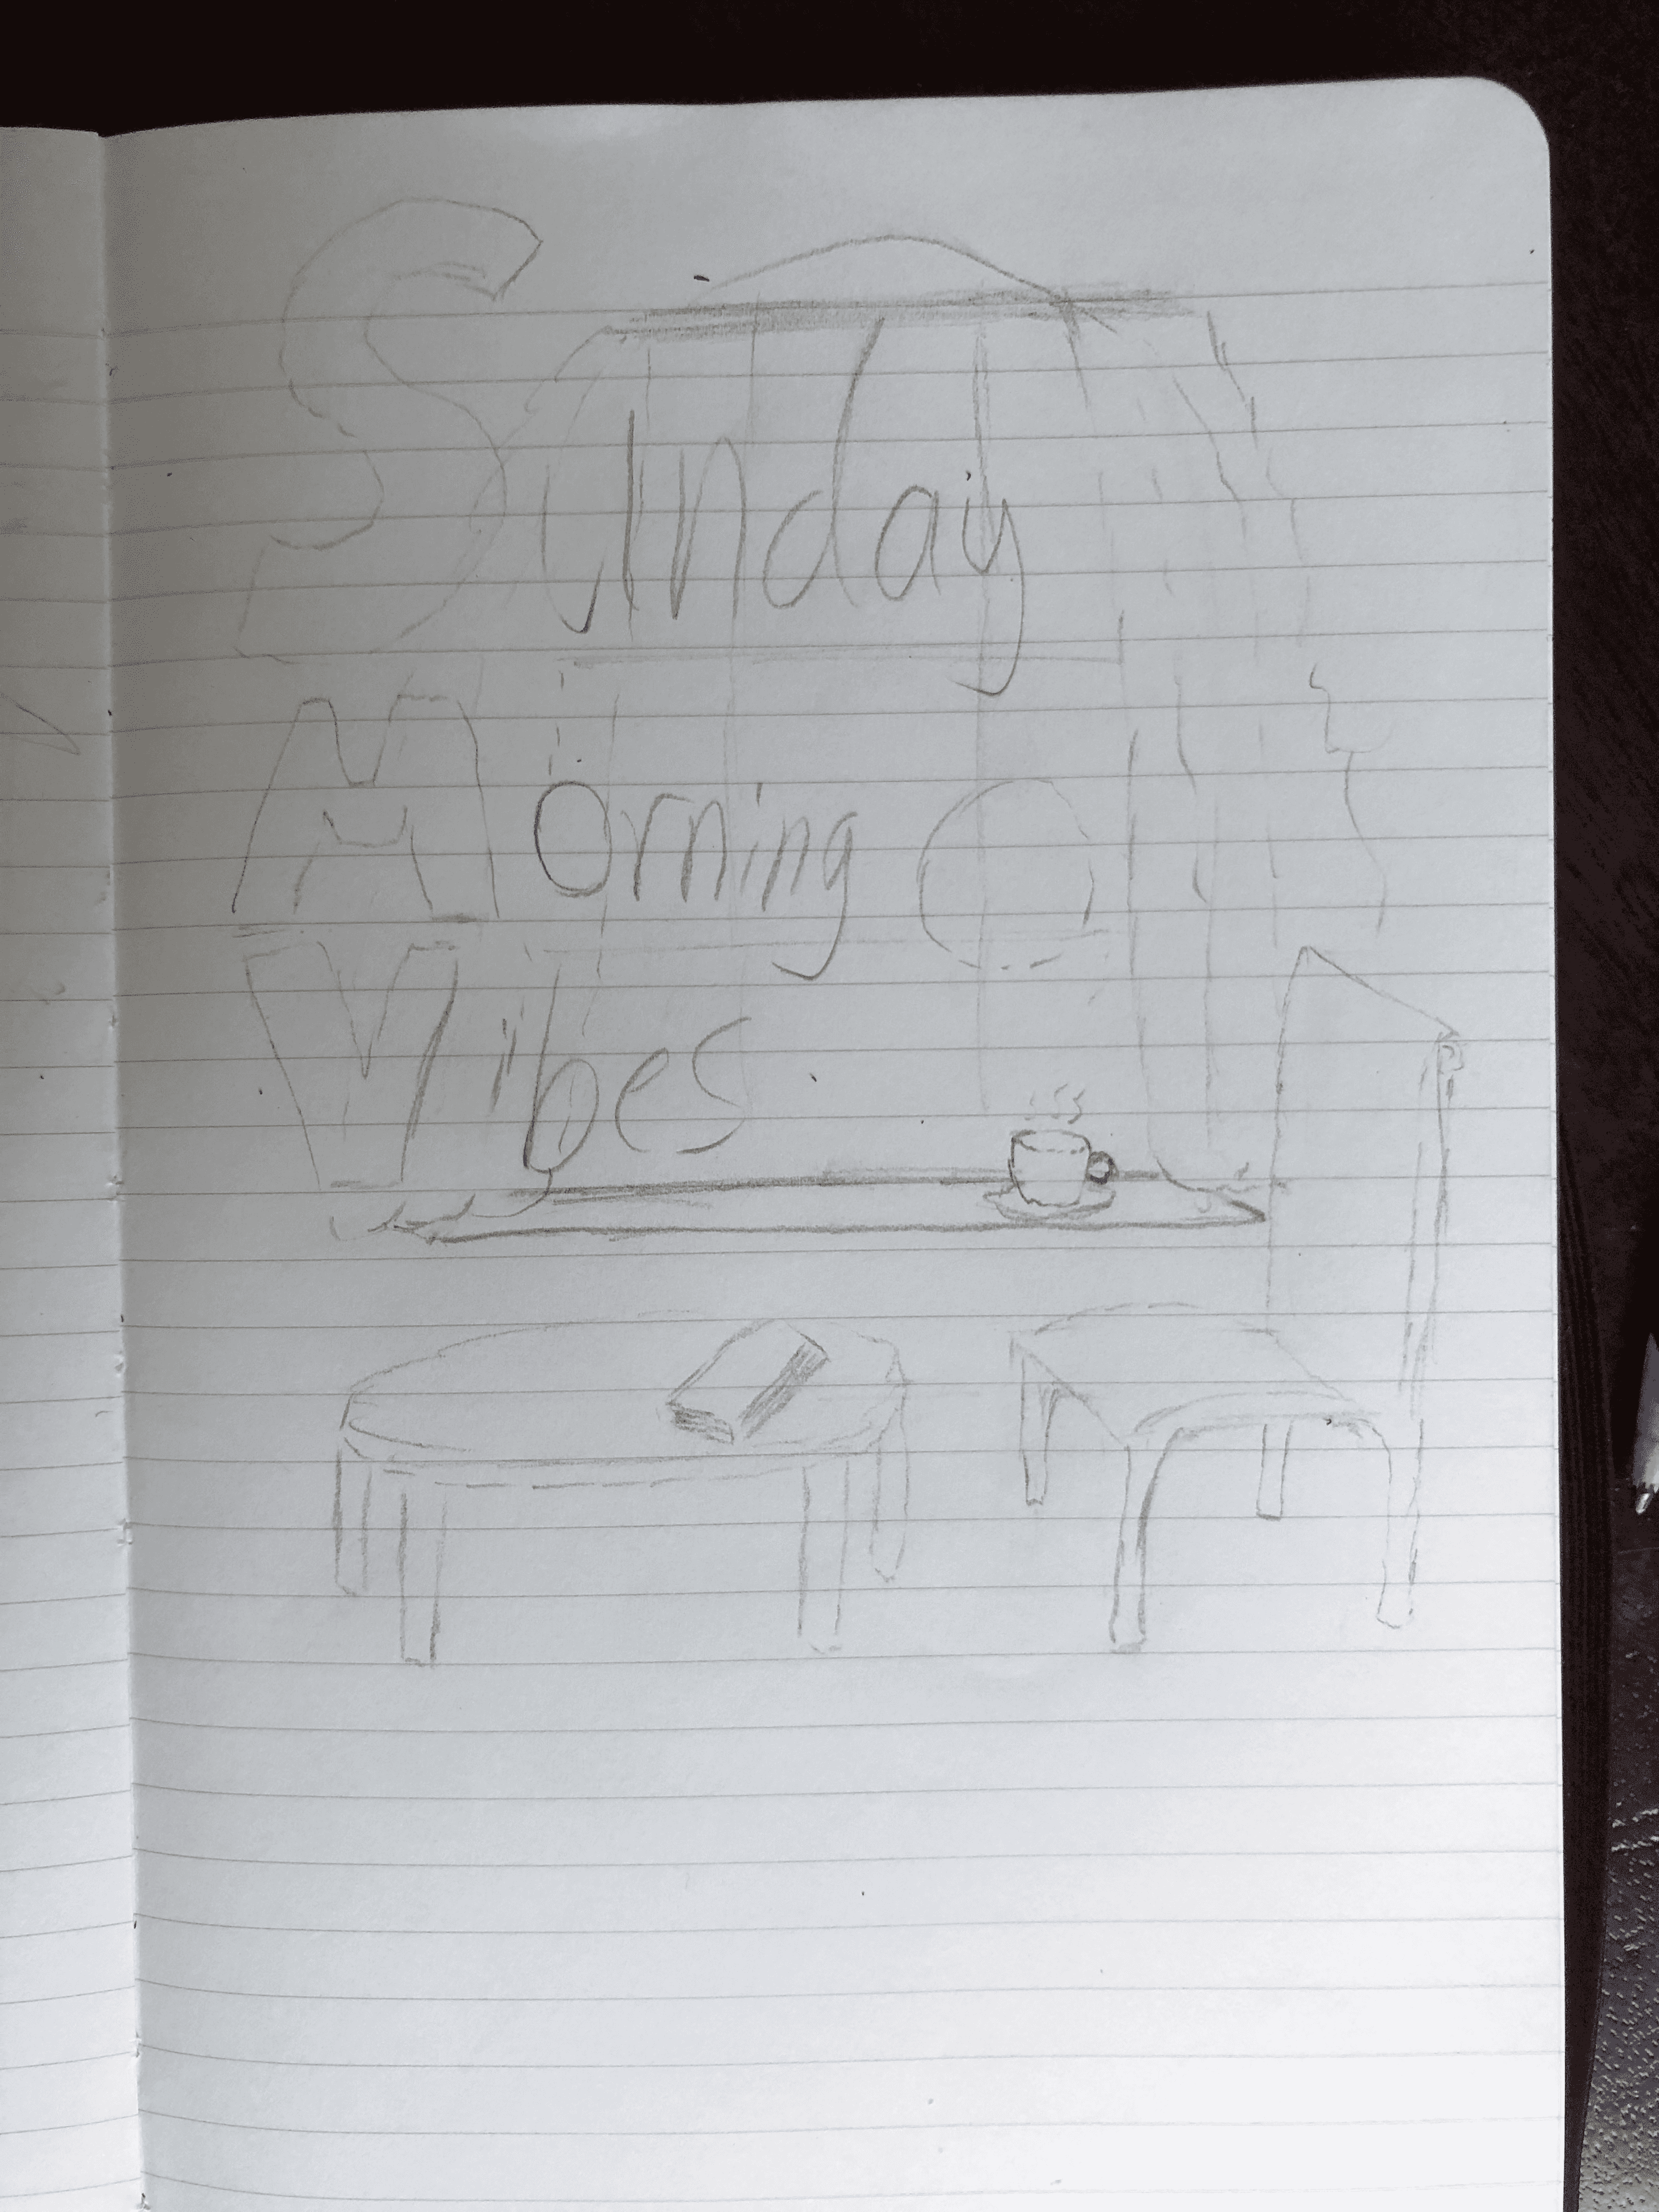 Sunday
Morning
Vibes